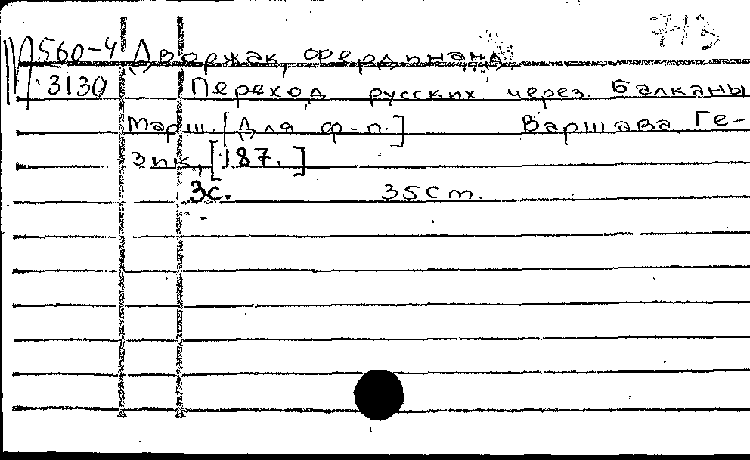 713
М560-4 Дворжак, Фердинанд.
3130 Переход русских через Балканы
Марш. [Для ф-п.] Варшава, Ге-
зик, [187. ]
3с. 35 см.